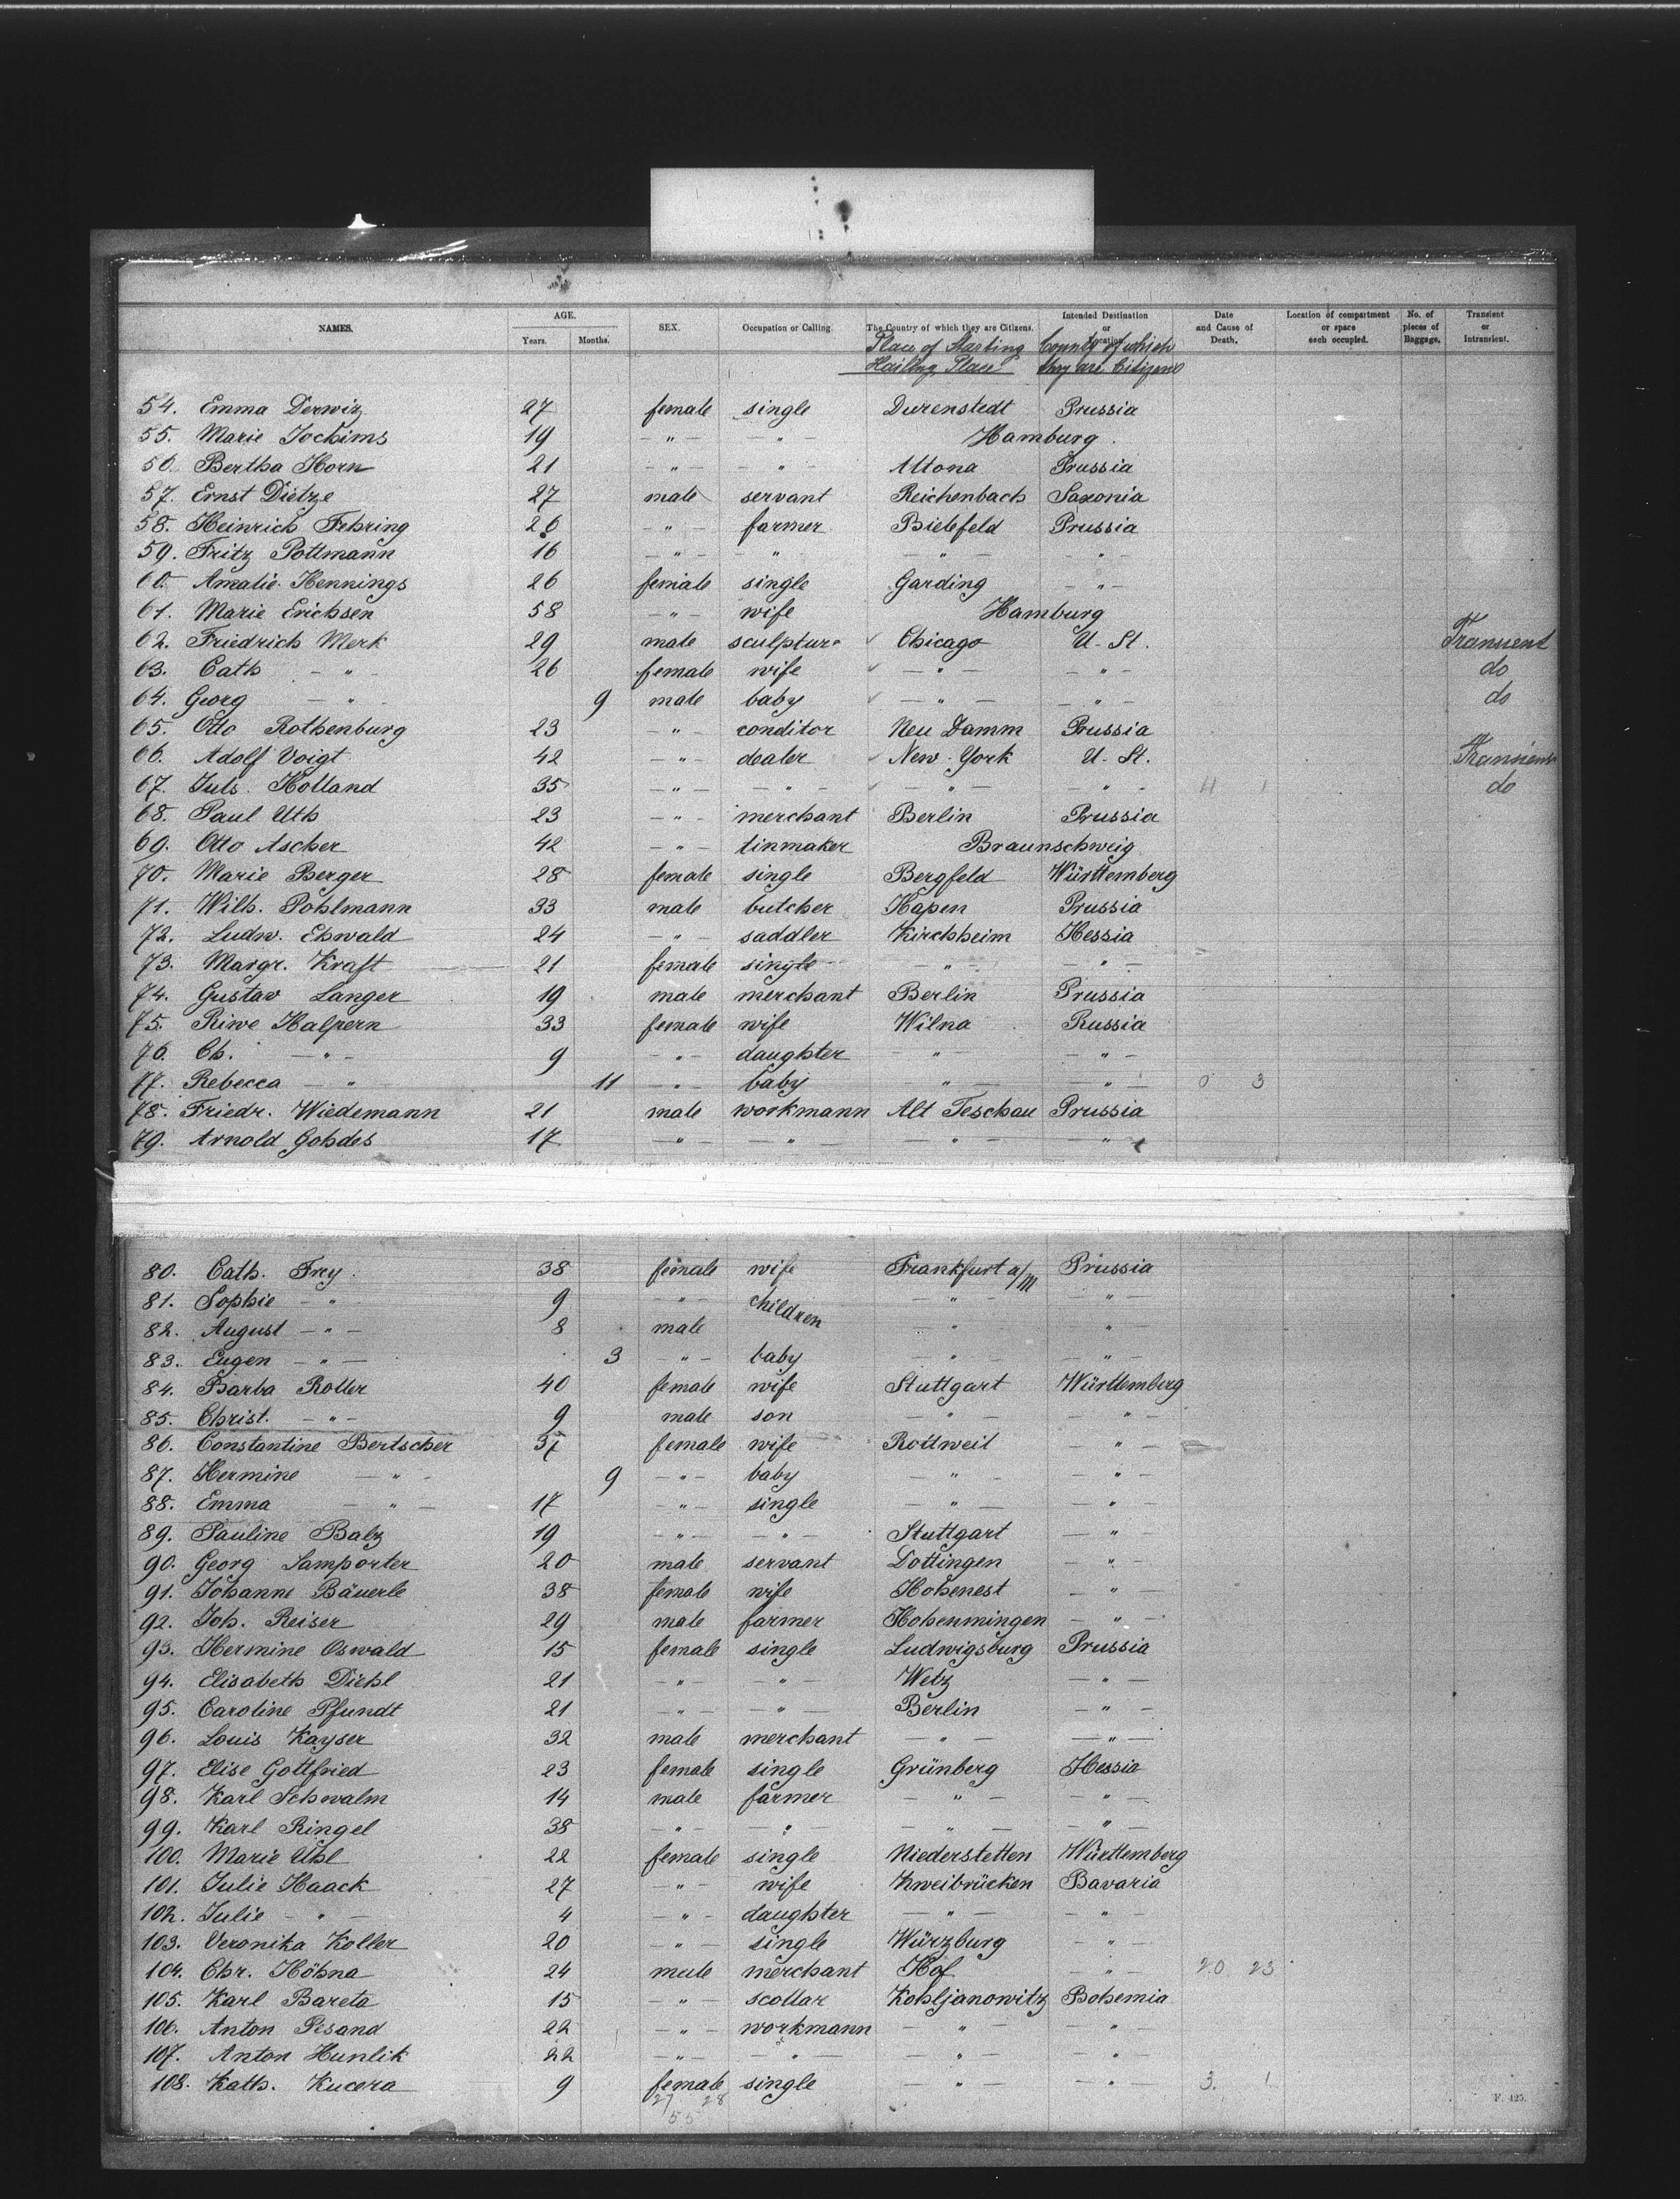 NAMES. AGE. Years. Months. SEX. Occupation or Calling. The Country of which they are Citizens. Intended Destination or Location. Date and Cause of Death. Location of compartment or space each occupied. No. of pieces of Baggage. Transient or Intransient.
Place of Starting County of which
Hailing Place they are Citizens
54. Emma Derwiz 27 female single Durenstedt Prussia
55. Marie Jochims 19 - " - - " - Hamburg.
56. Bertha Horn 21 - " - - " - Altona Prussia
57. Ernst Dietze 27 male servant Reichenbach Saxonia
58. Heinrich Fehring 26 - " - farmer Bielefeld Prussia
59. Fritz Pottmann 16 - " - - " - " - - " -
60. Amalie Hennings 26 female single Garding - " -
61. Marie Erichsen 58 - " - wife Hamburg
62. Friedrich Merk 29 male sculpture Chicago U. St. Transient
63. Cath - " - 26 female wife - " - - " - do
64. Georg - " - 9 male baby - " - - " - do
65. Otto Rothenburg 23 - " - conditor Neu Damm Prussia
66. Adolf Voigt 42 - " - dealer New-York U. St. Transient
67. Juls. Holland 35 - " - - " - - " - - " - 11 1 do
68. Paul Uth 23 - " - merchant Berlin Prussia
69. Otto Ascher 42 - " - tinmaker Braunschweig
70. Marie Berger 28 female single Bergfeld Württemberg
71. Wilh. Pohlmann 33 male butcher Hapen Prussia
72. Ludw. Ehwald 24 - " - saddler Kirchheim Hessia
73. Margr. Kraft 21 female single - " - - " -
74. Gustav Langer 19 male merchant Berlin Prussia
75. Riwe Halpern 33 female wife Wilna Russia
76. Ch. - " - 9 - " - daughter - " - - " -
77. Rebecca - " 11 - " - baby " - - " - 0 3
78. Friedr. Wiedemann 21 male workmann Alt Teschau Prussia
79. Arnold Gohdes 17 - " - - " - " - "
80. Cath. Frey. 38 female wife Frankfurt a/M Prussia
81. Sophie - " 9 - " - children - " - - " -
82. August - " - 8 male " - " -
83. Eugen - " - 3 - " - baby - " - - " -
84. Barba Roller 40 female wife Stuttgart Württemberg
85. Christ. - " - 9 male son - " - - " -
86. Constantine Bertscher 37 female wife Rottweil - " -
87. Hermine - " - 9 - " - baby " - - " -
88. Emma - " - 17 - " - single - " - - " -
89. Pauline Balz 19 - " - - " - Stuttgart - " -
90. Georg Samporter 20 male servant Dottingen - " -
91. Johanne Bäuerle 38 female wife Hohenest - " -
92. Joh. Reiser 29 male farmer Hohenmingen - " -
93. Hermine Oswald 15 female single Ludwigsburg Prussia
94. Elisabeth Diehl 21 - " - - " - Wetz - " -
95. Caroline Pfundt 21 - " - - " - Berlin - " -
96. Louis Kayser 32 male merchant - " - - " -
97. Elise Gottfried 23 female single Grünberg Hessia
98. Karl Schwalm 14 male farmer - " - - " -
99. Karl Ringel 38 - " - - " - - " - - " -
100. Marie Uhl 22 female single Niederstetten Württemberg
101. Julie Haack 27 - " - wife Zweibrücken Bavaria
102. Julie - " - 4 - " - daughter - " - - " -
103. Veronika Koller 20 - " - single Würzburg - " -
104. Chr. Höhna 24 male merchant Hof - " - 20 23
105. Karl Bareta 15 - " - scollar Kohljanowitz Bohemia
106. Anton Pisand 22 - " - workmann - " - - " -
107. Anton Hunlik 22 - " - - " - - " - - " -
108. Kath. Kucera 9 female single - " - - " - 3. 1
27 28
55
F. 425.